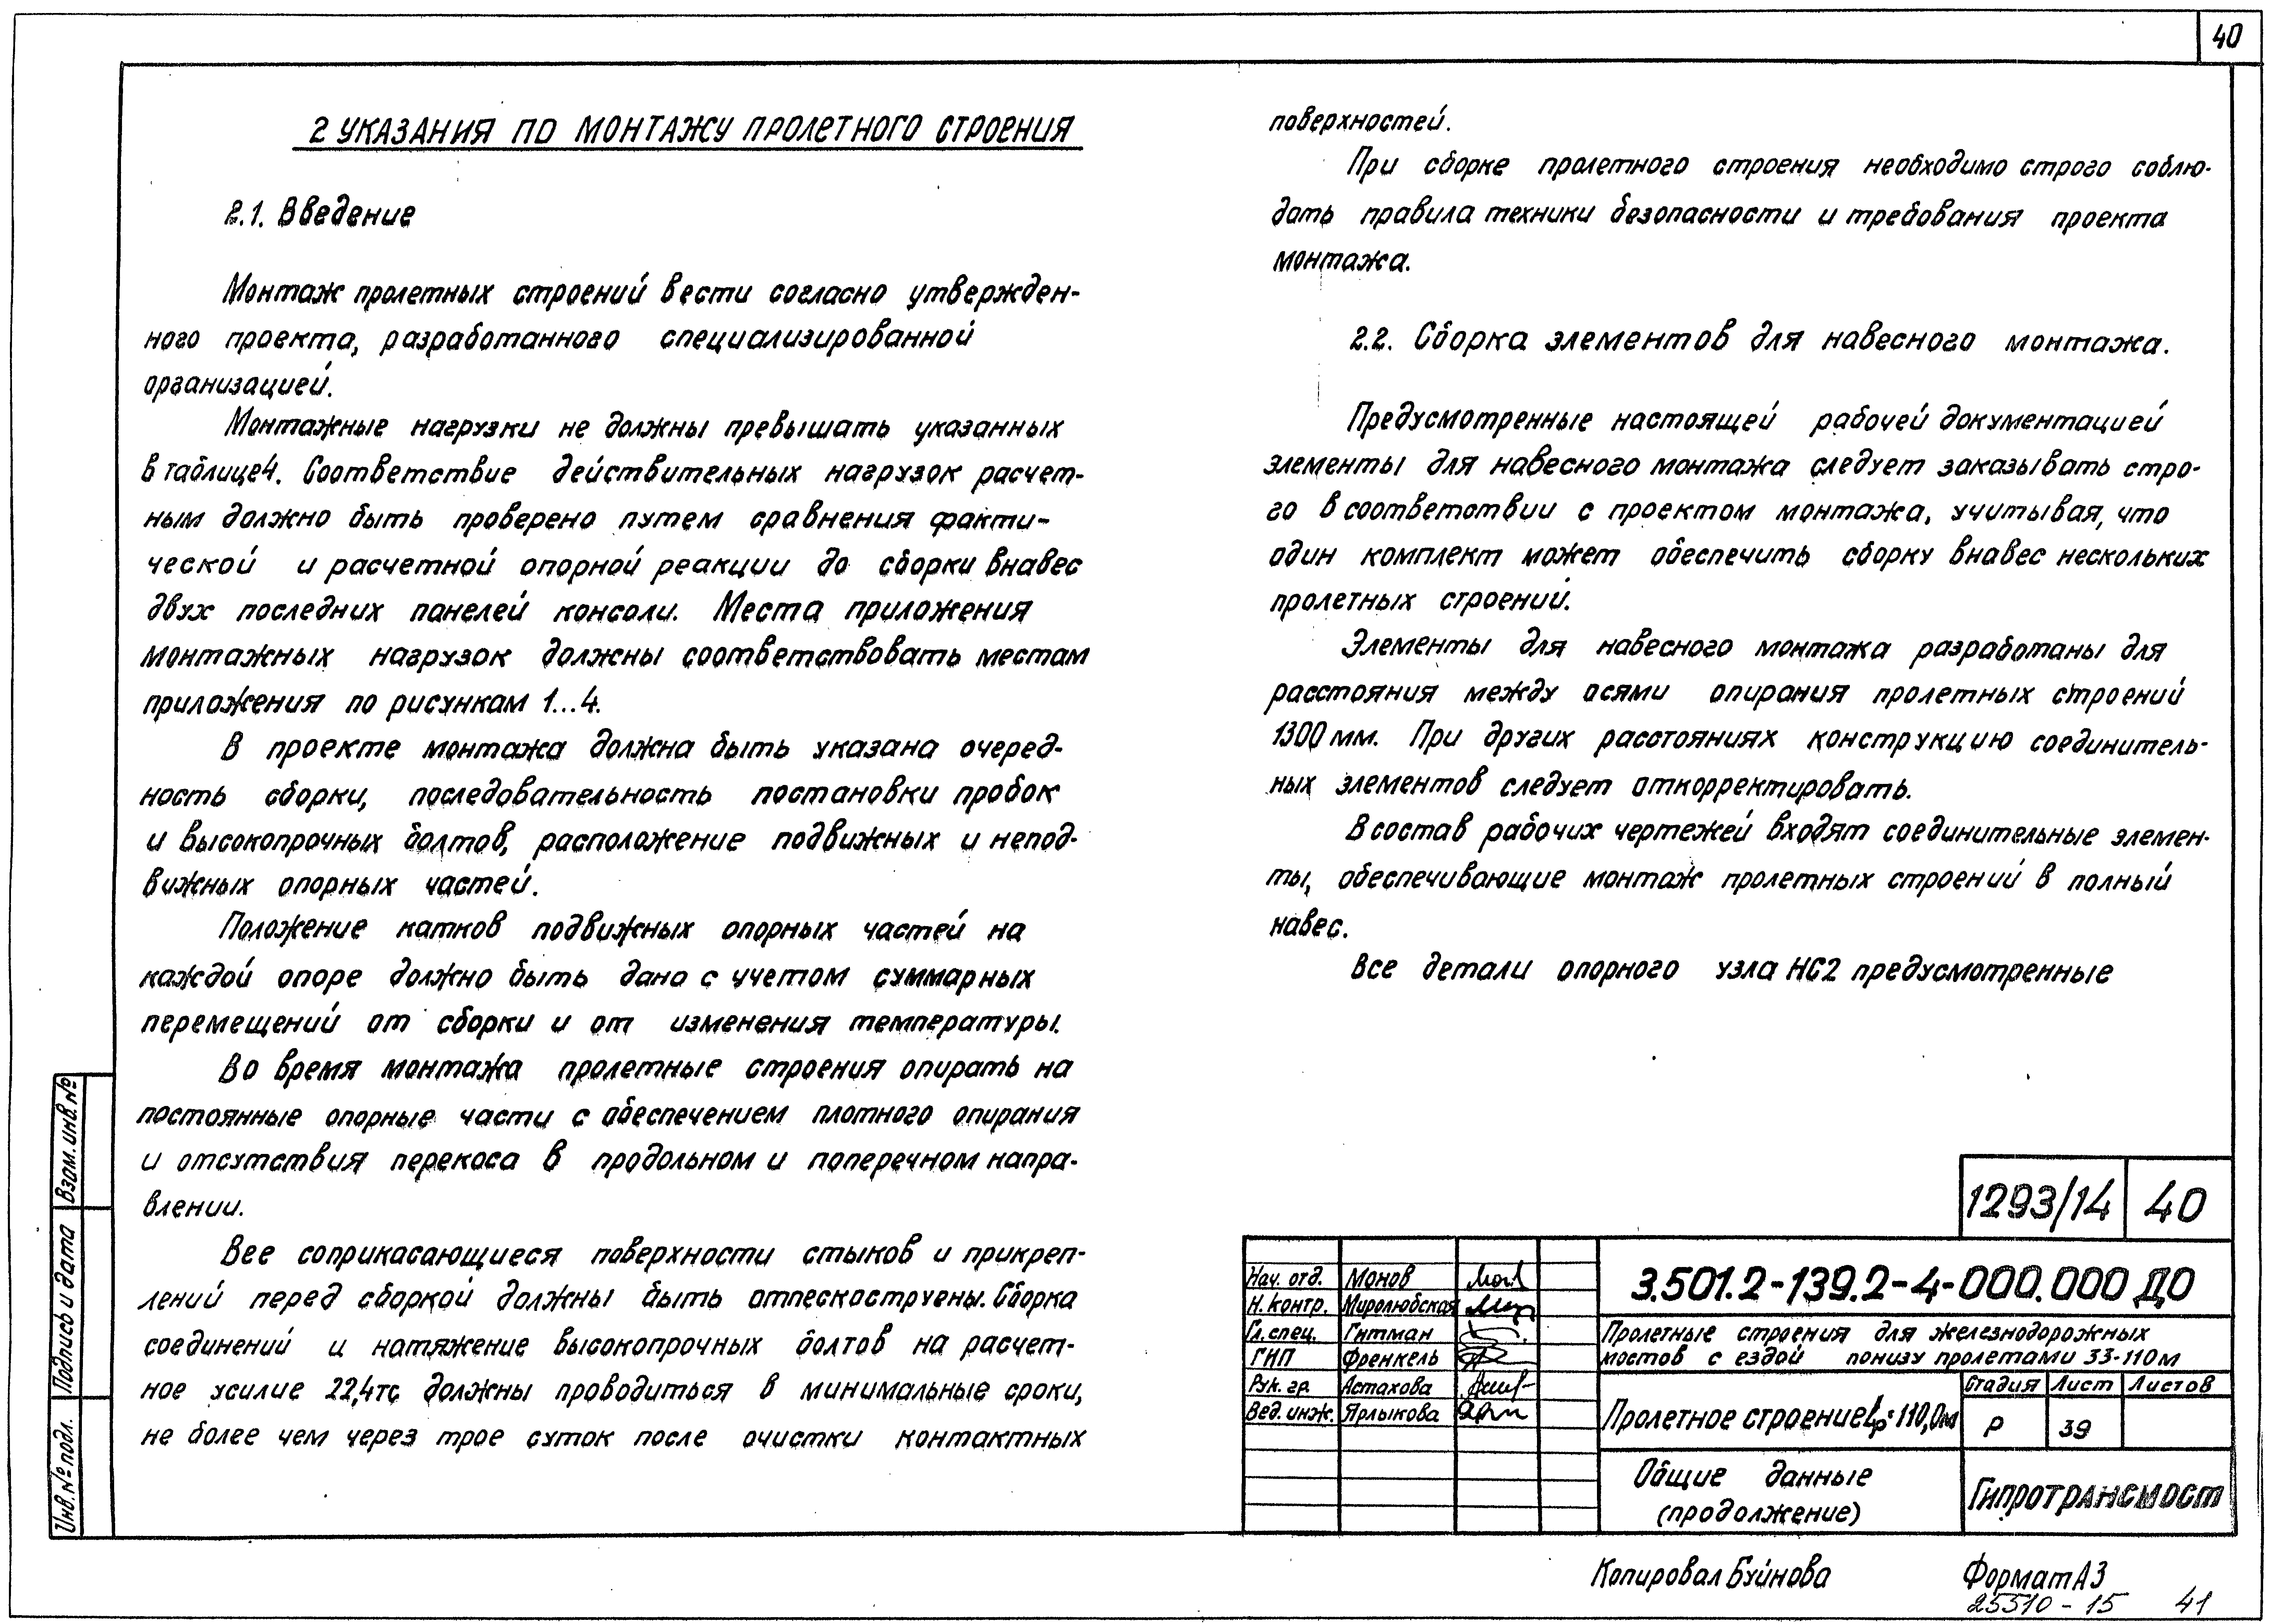 40
2 УКАЗАНИЯ ПО МОНТАЖУ ПРОЛЕТНОГО СТРОЕНИЯ
2.1. Введение
Монтаж пролетных строений вести согласно утвержден-
ного проекта, разработанного специализированной
организацией.
Монтажные нагрузки не должны превышать указанных
в таблице4. Соответствие действительных нагрузок расчет-
ным должно быть проверено путем сравнения факти-
ческой и расчетной опорной реакции до сборки внавес
двух последних панелей консоли. Места приложения
монтажных нагрузок должны соответствовать местам
приложения по рисункам 1...4.
В проекте монтажа должна быть указана очеред-
ность сборки, последовательность постановки пробок
и высокопрочных болтов, расположение подвижных и непод-
вижных опорных частей.
Положение катков подвижных опорных частей на
каждой опоре должно быть дано с учетом суммарных
перемещений от сборки и от изменения температуры.
Во время монтажа пролетные строения опирать на
постоянные опорные части с обеспечением плотного опирания
и отсутствия перекоса в продольном и поперечном напра-
влении.
Все соприкасающиеся поверхности стыков и прикреп-
лений перед сборкой должны быть отпескоструены. Сборка
соединений и натяжение высокопрочных болтов на расчет-
ное усилие 22,4тс должны проводиться в минимальные сроки,
не более чем через трое суток после очистки контактных
поверхностей.
При сборке пролетного строения необходимо строго соблю-
дать правила техники безопасности и требования проекта
монтажа.
2.2. Сборка элементов для навесного монтажа.
Предусмотренные настоящей рабочей документацией
элементы для навесного монтажа следует заказывать стро-
го в соответствии с проектом монтажа, учитывая, что
один комплект может обеспечить сборку внавес нескольких
пролетных строений.
Элементы для навесного монтажа разработаны для
расстояния между осями опирания пролетных строений
1300 мм. При других расстояниях конструкцию соединитель-
ных элементов следует откорректировать.
В состав рабочих чертежей входят соединительные элемен-
ты, обеспечивающие монтаж пролетных строений в полный
навес.
Все детали опорного узла НС2 предусмотренные
1293/14 40
Нач. отд. Монов
Н. контр. Миролюбская
Гл. спец. Гитман
ГИП Френкель
Рук. гр. Астахова
Вед. инж. Ярлыкова
3.501.2-139.2-4-000.000 ДО
Пролетные строения для железнодорожных
мостов с ездой понизу пролетами 33-110 м
Пролетное строение Lр=110,0м
Стадия Лист Листов
Р 39
Общие данные
(продолжение)
Гипротрансмост
Инв. № подл. Подпись и дата Взам. инв. №
Копировал Буйнова
Формат А3
25510-15 41